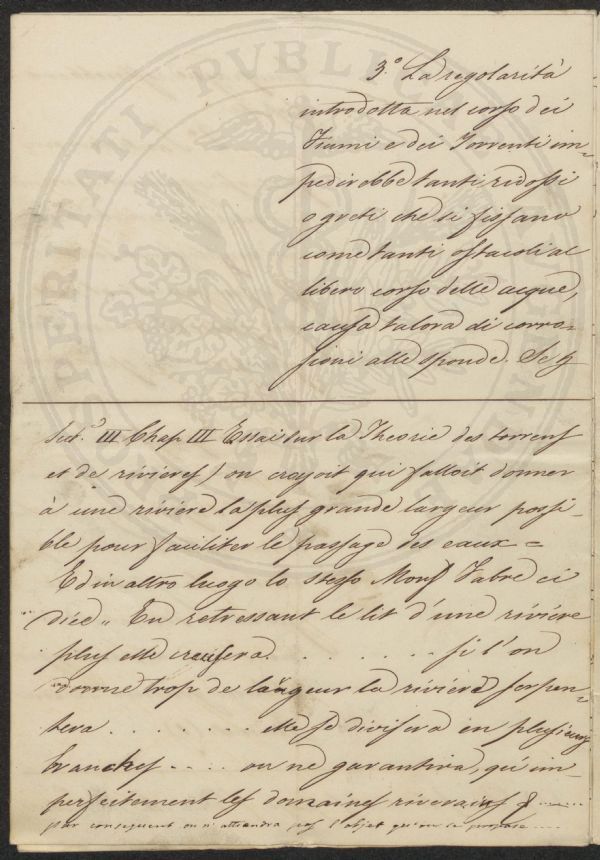 3.° La regolarità
introdotta nel corso dei
Fiumi e dei Torrenti im-
pedirebbe tanti ridossi
o greti che si fissano
come tanti ostacoli al
libero corso delle acque,
causa talora di corro-
sioni alle sponde. Se
Sect.ª III Chap III Essai sur la Theorie des torrens
et de rivieres) on crayoit qui falloit donner
à une riviére la plus grande largeur possi-
ble pour faciliter le passage des eaux =
Ed in altro luogo lo stesso Mons Fabre ci
dice „ En retressant le lit d'une riviére
plus elle creusera. . . . . . . . si l'on
donne trop de largeur la riviéra serpen-
tera . . . . . . . elle se divisera en plusieurs
branches . . . . on ne garantira, qu'im-
perfaitement les domaines riverains
par consequent on n'attiendra pas l'objet qu'on se propose ....
PROSPERITATI PVBLICAE